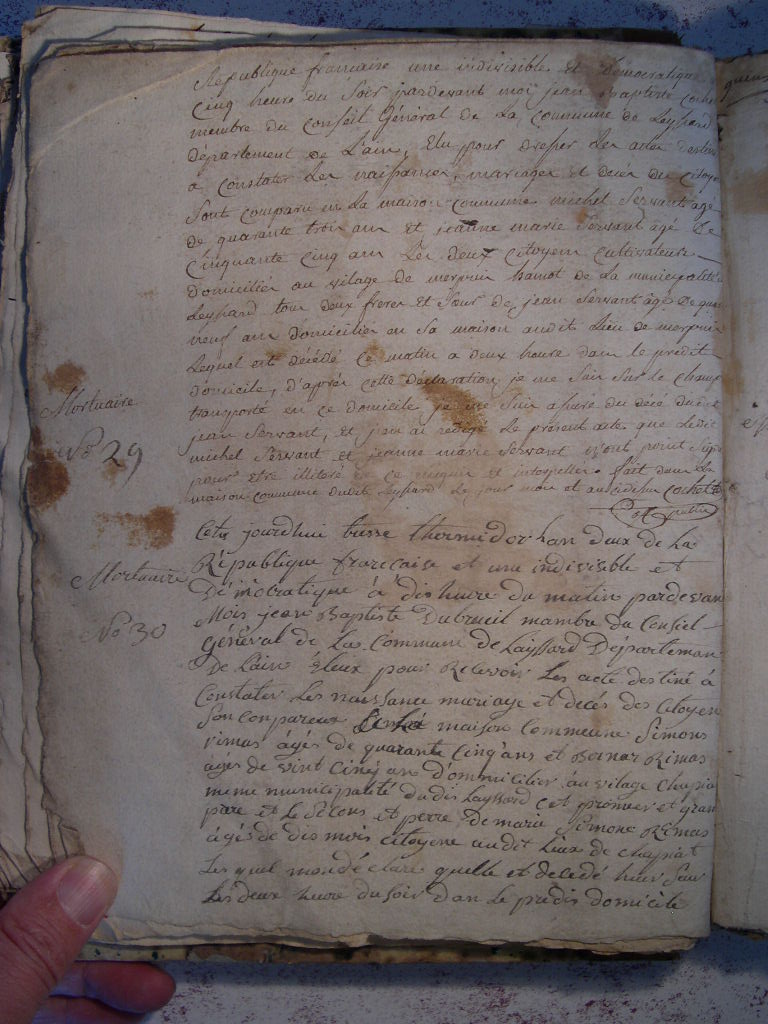 République francaise une indivisible et démocratique
Cinq heure du soir pardevant moi jean Baptiste cochet
membre du conseil Général de la commune de Leyssard
Département de L'ain, Elu pour dresser les actes destiné
a constater les naissances, mariages et deces des citoyens
Sont comparu en la maison commune michel Servant agé
de quarante trois ans et jeanne marie Servant âgé de
Cinquante cinq ans les deux citoyens cultivateurs
domiciliés au vilage de merpuis hamot de la municipalité
Leyssard tous deux freres et sœur de jean Servant âgé de
neuf ans domicilier en sa maison audit lieu de merpuis
Lequel est décédé ce matin a deux heure dans le predit
domicile, d'après cette déclaration je me suis sur le champ
transporté en ce domicile je me suis assuré du décé dudit
jean Servant, et j'en ai redigé le présent acte que ledit
Mortuaire
No 29
michel Servant et jeanne marie Servant n'ont point signé
pour etre illiteré de ce requis et interpeller. fait dans la
maison commune dudit Leyssard le jour mois et an cidessus cochet
Cets jourdhui tresse thermidor lan deux de la
République francaise et une indivisible et
Mortuaire
No 30
Démocratique à dis heure du matin pardevan
Mois jean Baptiste Dubreuil mambre du Consiel
général de la Commune de Layssard Départeman
De Lain Éleux pour Recevoir les acte destiné à
Constater les naissance mariage et decés des Citoyen
Son conpareux maison Commeune Simons
rimas agés de quarante Cinq ans et Bernar Rimas
agés de vint Cinq an Dommicilier au vilage Chapia
meme municipalité dudis Layssard cet premier et gran
pere et le Secons et perre de marie Simone Rimas
agés de dis mois Citoyene audit lieux de chapiat
Les quel mon déclare quelle et decedé hier Seur
les deux heure du soir dan le predis domicile